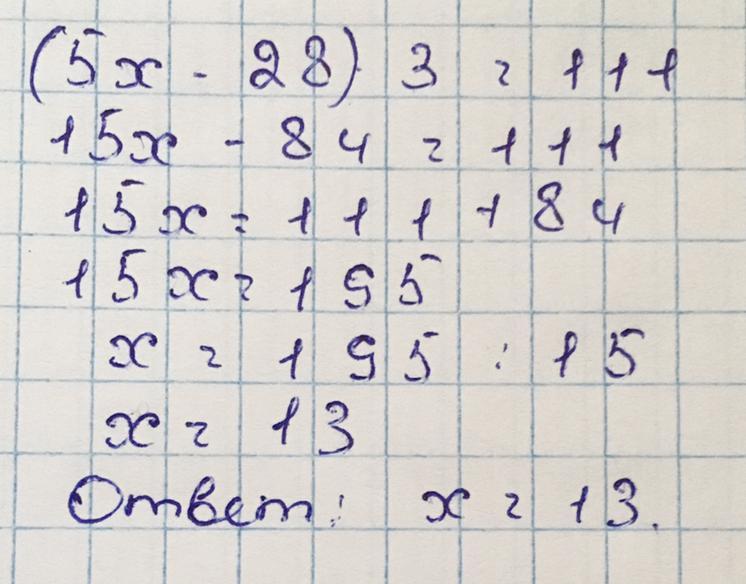 (5x - 28) 3 = 111
15x - 84 = 111
15x = 111 + 84
15x = 195
x = 195 : 15
x = 13
Ответ: x = 13.